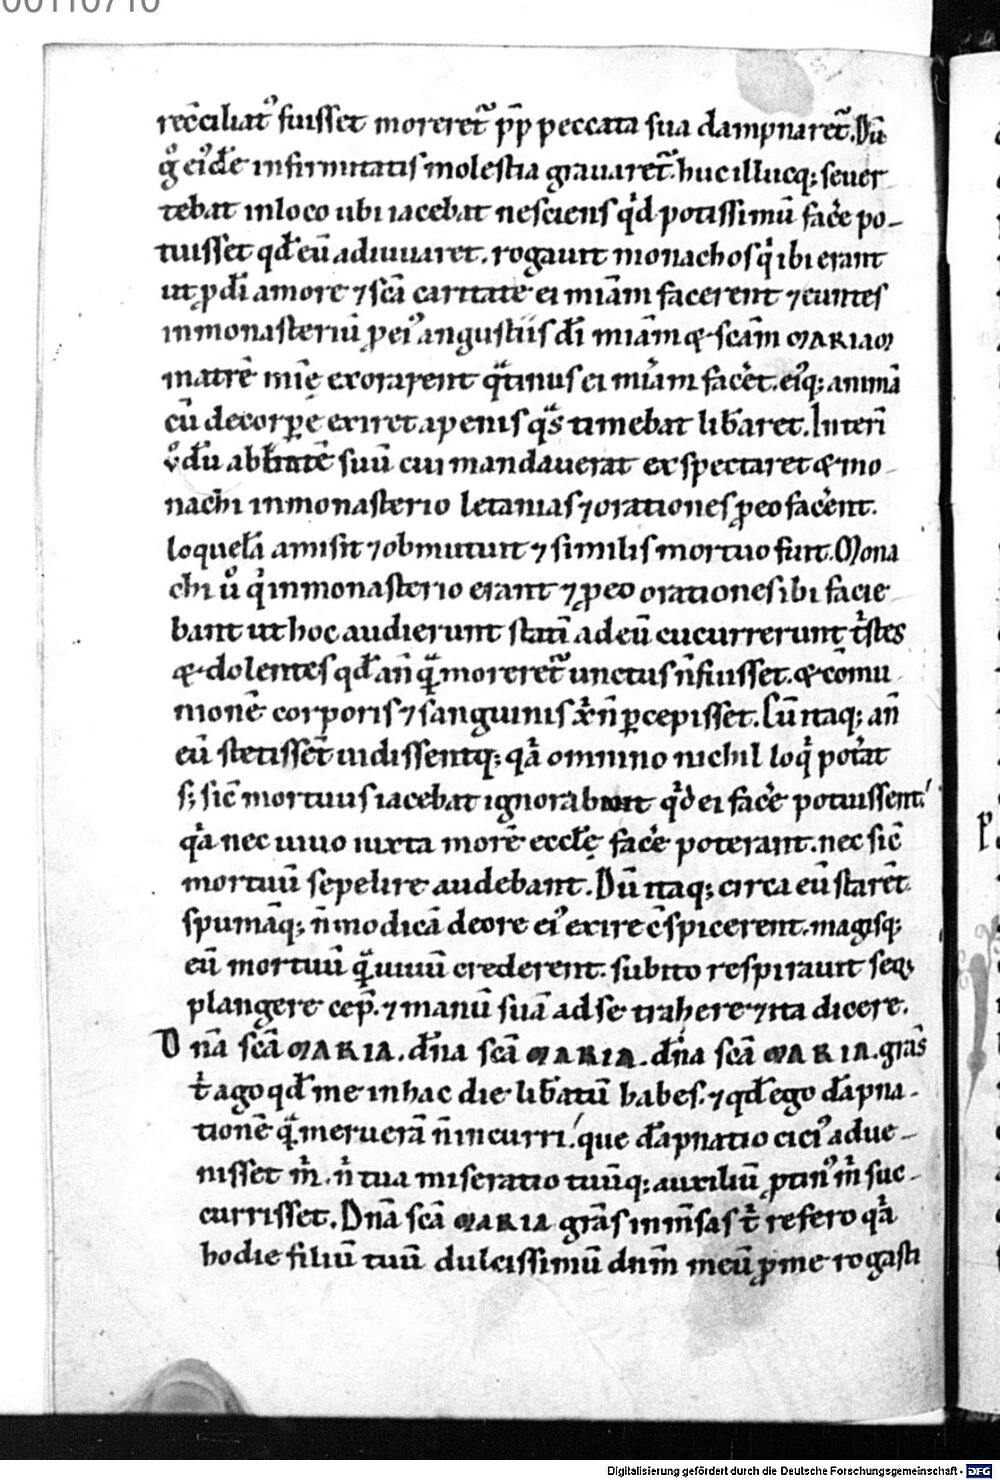 00110710
rec̄ciliat᷒ fuisset moreret᷑ pp̄ peccata sua dampnaret᷑. Dū
gͦ ei᷒dē infirmitatis molestia grauaret᷑. huc illucq; seuer
tebat in loco ubi iacebat nesciens qͥd potissimū fac̄e po-
tuisset qd̄ eū adiuuaret. rogauit monachos qͥ ibi erant
ut ꝓ dī amore ⁊ scā caritate ei miām facerent ⁊ euntes
in monasteriū ꝓ ei᷒ angustiis dī miām & scām MARIAM
matrē mīe exorarent qͣtinus ei miām fac̄et. ei᷒q; animā
cū de corꝑe exiret a penis qͣs timebat lib̄aret. Interī
ͦ dū abbatē suū cui mandauerat exspectaret & mo-
nachi in monasterio letanias ⁊ orationes ꝓ eo fac̄ent.
loquelā amisit ⁊ obmutuit ⁊ similis mortuo fuit. Mona
chi uͦ qͥ in monasterio erant ⁊ ꝓ eo orationes ibi facie-
bant ut hoc audierunt statī ad eū cucurrerunt tͥstes
& dolentes qd̄ an̄ qͣ̄ moreret᷑ unctus n̄ fuisset. & cōmu
nionē corporis ⁊ sanguinis xp̄i n̄ ꝑcepisset. Cū itaq; an̄
eū stetissēt uidissentq; qͥa omnino nichil loqͥ pot̄at
s; sic̄ mortuus iacebat ignorabant qͥd ei fac̄e potuissent.
qͥa nec uiuo iuxta morē eccłę fac̄e poterant. nec sic̄
mortuū sepelire audebant. Dū itaq; circa eū starēt
spumāq; n̄ modicā de ore ei᷒ exire c̄spicerent. magisq;
eū mortuū qͣ̄ uiuū crederent. subito respirauit seq;
plangere cep̄. ⁊ manū suā ad se trahere ⁊ ita dicere.
Dn̄a scā MARIA. dn̄a scā MARIA. dn̄a scā MARIA. grās
tͥ ago qd̄ me in hac die lib̄atū habes. ⁊ qd̄ ego dāpna-
tionē qͣ̄ merueram n̄ incurri. que dāpnatio cici᷒ adue-
nisset mͥ. nͥ tua miseratio tuūq; auxiliū ꝓtin᷒ mͥ suc-
currisset. Dn̄a scā MARIA grās inm̄sas tͥ refero qͥa
hodie filiū tuū dulcissimū dnm̄ meū ꝓ me rogasti
Digitalisierung gefördert durch die Deutsche Forschungsgemeinschaft - DFG